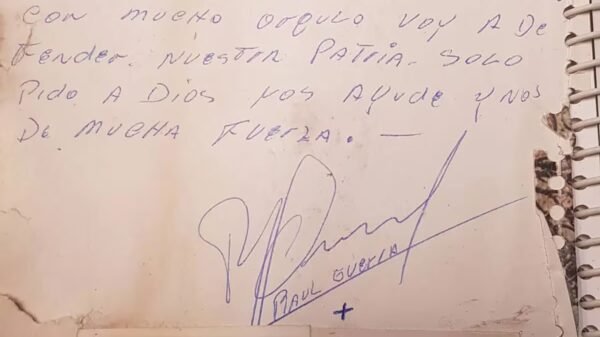 CON MUCHO ORGULO VOY A DE
FENDER. NUESTRA PATRIA. SOLO
PIDO A DIOS NOS AYUDE Y NOS
DE MUCHA FUERZA. —
RAUL GUERRA
+